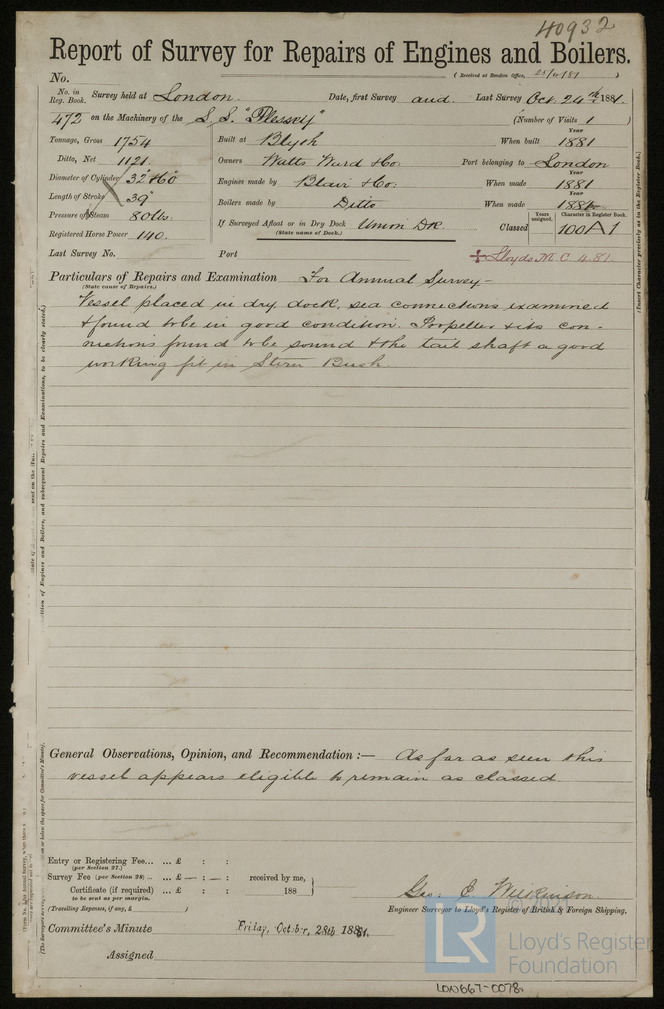 40932
Report of Survey for Repairs of Engines and Boilers.
No. (Received at London Office, 25/10/81)
No. in Reg. Book. Survey held at London. Date, first Survey and. Last Survey Oct. 24th 1881.
472 on the Machinery of the S.S. "Plessey" (Number of Visits 1)
Tonnage, Gross 1754 Built at Blyth When built Year 1881
Ditto, Net 1121. Owners Watts Ward & Co. Port belonging to London
Diameter of Cylinder 32" & 60" Engines made by Blair & Co: When made Year 1881
Length of Stroke 39" Boilers made by Ditto When made Year 1881
Pressure of Steam 80 lbs. If Surveyed Afloat or in Dry Dock Union Dk. Classed Years assigned. Character in Register Book. 100A1
(State name of Dock.)
Registered Horse Power 140.
Last Survey No. Port Lloyds M C 4.81
Particulars of Repairs and Examination For Annual Survey -
(State cause of Repairs.)
Vessel placed in dry dock, sea connections examined
& found to be in good condition. Propeller & its con-
nections found to be sound & the tail shaft a good
working fit in Stern Bush.
(Insert Character precisely as in the Register Book.)
General Observations, Opinion, and Recommendation :— As far as seen this
vessel appears eligible to remain as classed
Entry or Registering Fee... ... £ : :
(per Section 27.)
Survey Fee (per Section 28) ... ... £ — : — : received by me,
Certificate (if required) ... £ : : 188
to be sent as per margin.
(Travelling Expenses, if any, £ )
Geo: E Wilkinson
Engineer Surveyor to Lloyd's Register of British & Foreign Shipping.
Committee's Minute Friday, October, 28th 1881.
Assigned
LR
Lloyd's Register
Foundation
LON667-0078